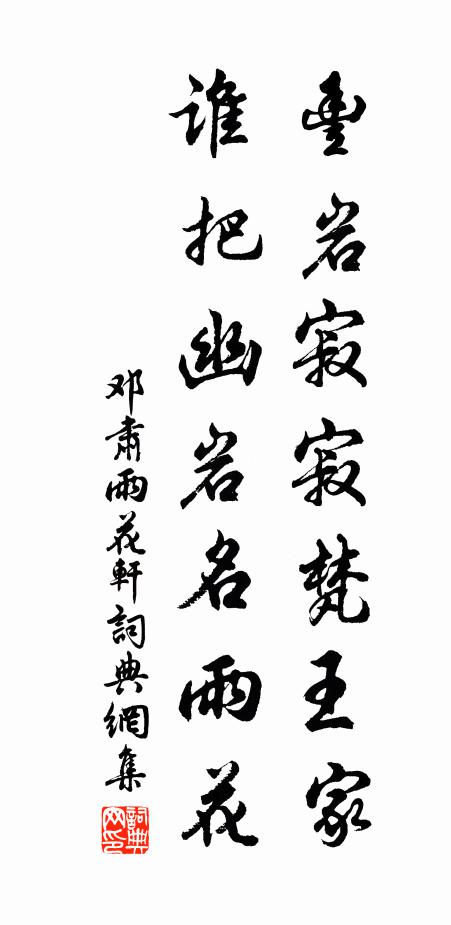 豐岩寂寂梵王家
誰把幽岩名雨花
邓肅雨花軒詞典網集
詞典网印